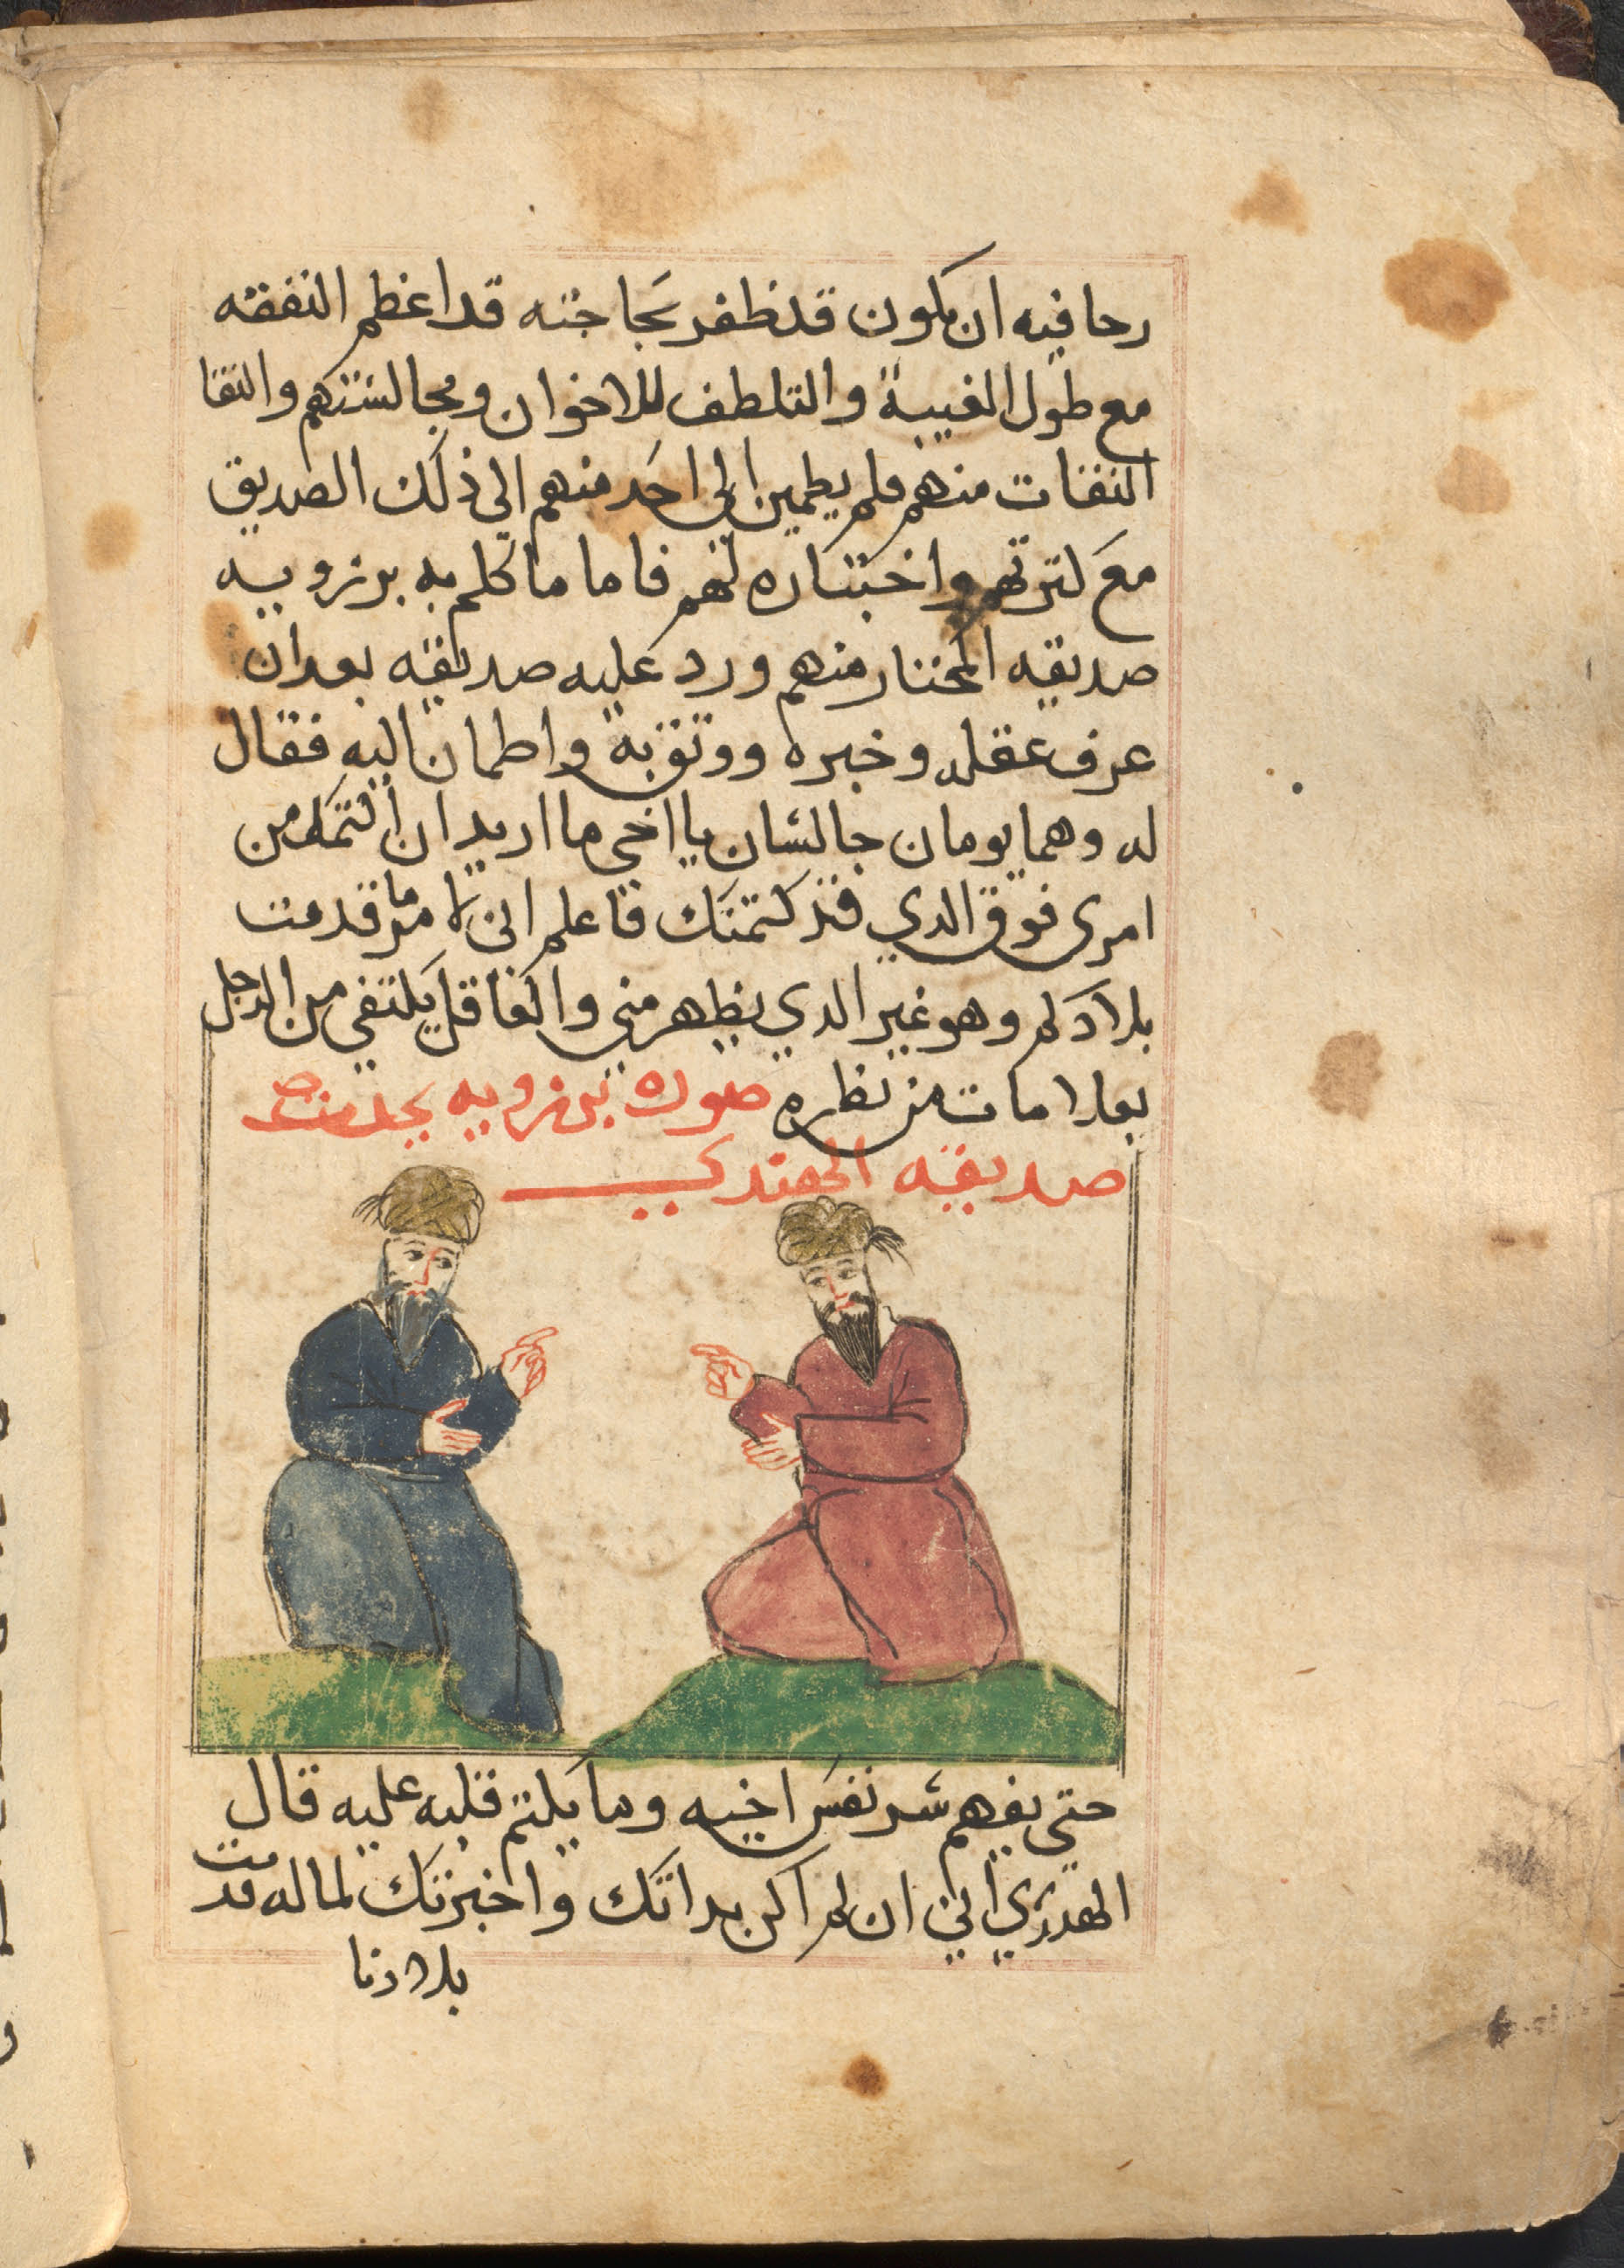 رحا فيه ان يكون قد ظفر بحاجته قد اعظم النفقه
مع طول الغيبة والتلطف للاخوان ومجالستهم والتقا
الثقات منهم فلم يطمين الي احد منهم الي ذلك الصديق
مع كثرتهم واختباره لهم فاما ما كلم به برزويه
صديقه المختار منهم ورد عليه صديقه بعد ان
عرف عقله وخبره ووثق به واطمان اليه فقال
له وهما يومان جالسان يا اخي ما اريد ان اكتمك من
امري فوق الدي قد كتمتك فاعلم اني لامر ما قدمت
بلادكم وهو غير الدي يظهر مني والعاقل يكتفي من الرجل
بعلامات من نظره صورة برزويه يحدث
صديقه الهندي
حتى يفهم سر نفس اخيه وما يكتم قلبه عليه قال
الهندي اني ان لم اكن بداتك واخبرتك لما له قدمت
بلادنا